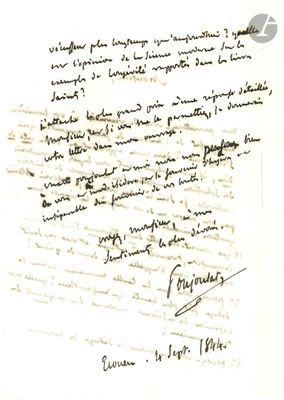 vécussent plus longtemps qu'aujourd'hui ? quelle
est l'opinion de la science moderne sur les
exemples de longévité rapportés dans les livres
saints ?
J'attache le plus grand prix à une réponse détaillée,
Monsieur, et si vous me le permettez, je donnerai
votre lettre dans mon ouvrage.
bien
le souvenir
inséparable du souvenir de vos bontés.
croyez, monsieur, à mes
sentiments les plus dévoués.
Poujoulat
Ecouen 4 Sept. 1844.